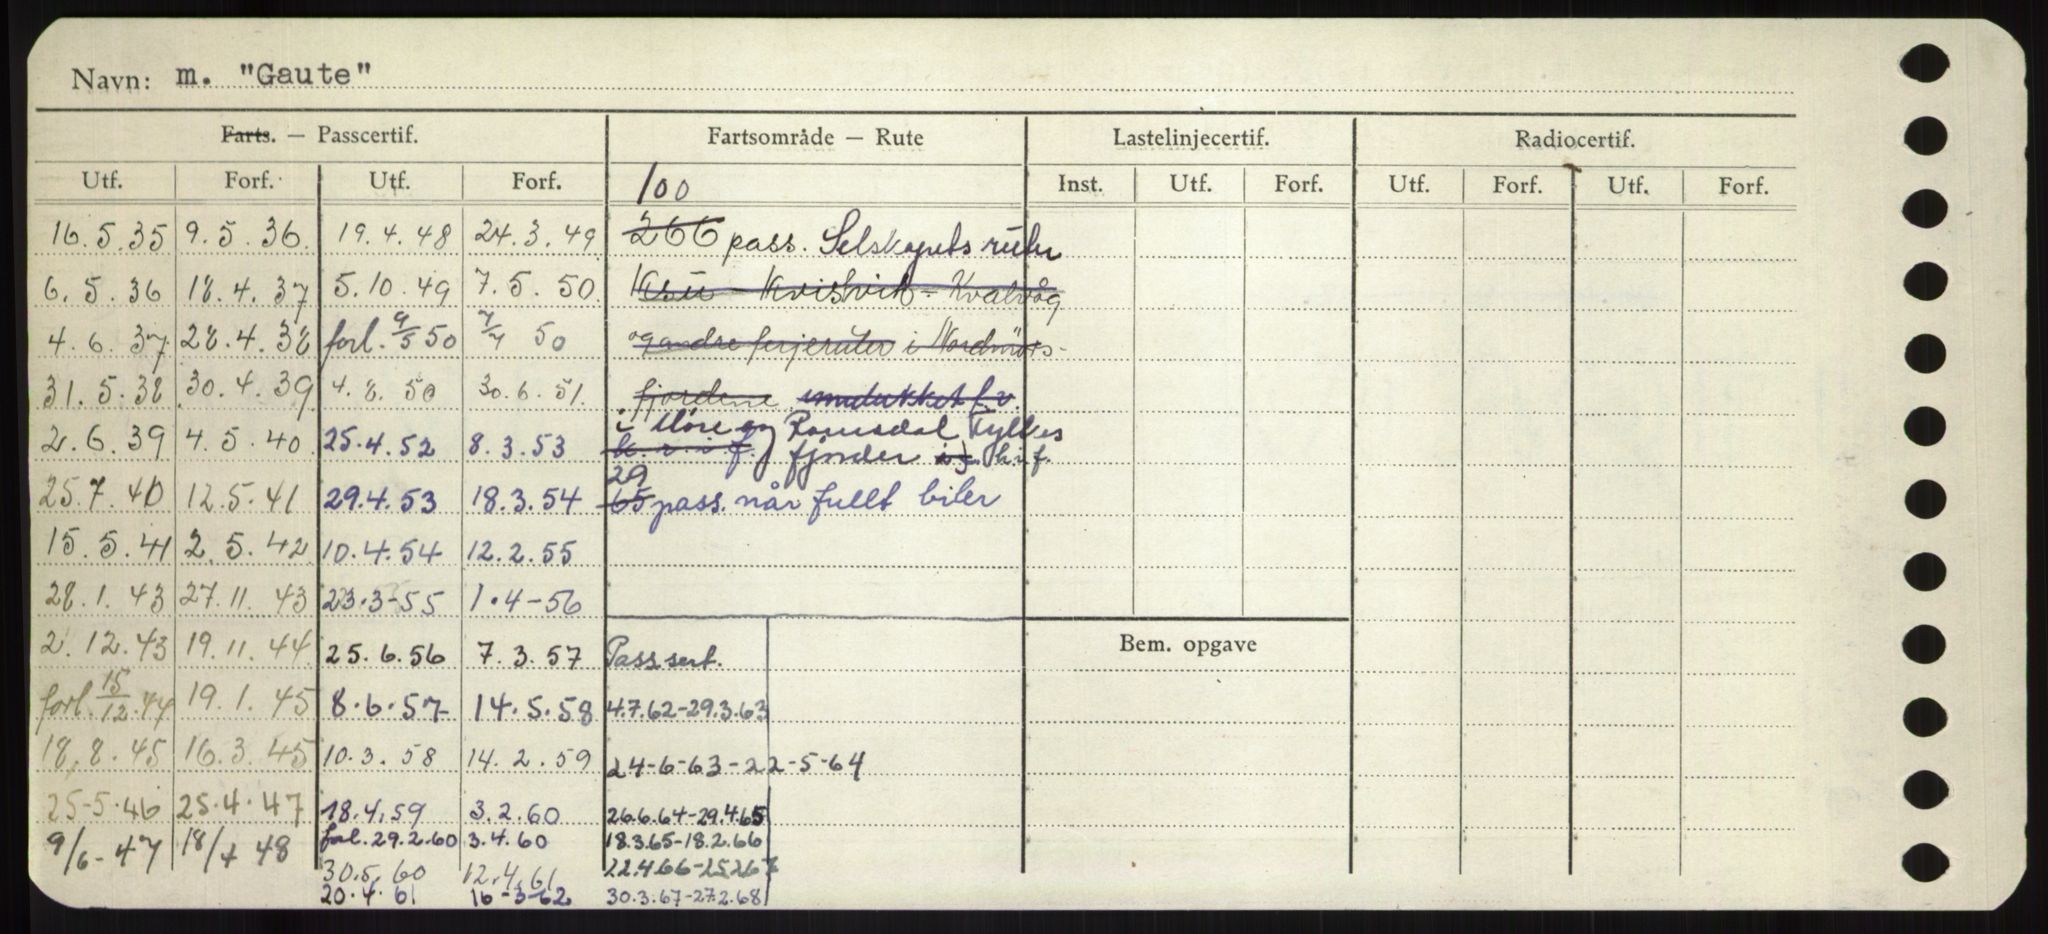 Navn: m. "Gaute"
Farts. — Passcertif. Fartsområde — Rute Lastelinjecertif. Radiocertif.
Utf. Forf. Utf. Forf. 100 Inst. Utf. Forf. Utf. Forf. Utf. Forf.
16.5.35 9.5.36. 19.4.48 24.3.49 266 pass. Selskapets ruter
6.5.36 18.4.37 5.10.49 7.5.50. Ksu - Kvisvik - Kvalvåg
4.6.37 28.4.38 forl. 9/5 50 7/7 50 og andre ferjeruter i Nordmörs-
31.5.38 30.4.39 4.8.50 30.6.51. fjordene innelukket f.v.
i Møre og Romsdal Fylkes
2.6.39 4.5.40 25.4.52 8.3.53 fjorder h.i.f.
29
25.7.40 12.5.41 29.4.53 18.3.54 65 pass. når fullt biler
15.5.41 2.5.42 10.4.54 12.2.55
28.1.43 27.11.43 23.3-55 1.4-56
2.12.43 19.11.44 25.6.56 7.3.57 Pass sert. Bem. opgave
forl. 15/12.44 19.1.45 8.6.57 14.5.58 4.7.62-29.3.63
18.8.45 16.3.45 10.3.58 14.2.59 24-6-63-22-5-64
25-5.46 25.4.47 18.4.59 3.2.60 26.6.64-29.4.65
9/6-47 18/4 48 fol. 29.2.60 3.4.60 18.3.65-18.2.66
30.5.60 12.4.61 22.4.66-25.2.67
20.4.61 16-3-62 30.3.67-27.2.68